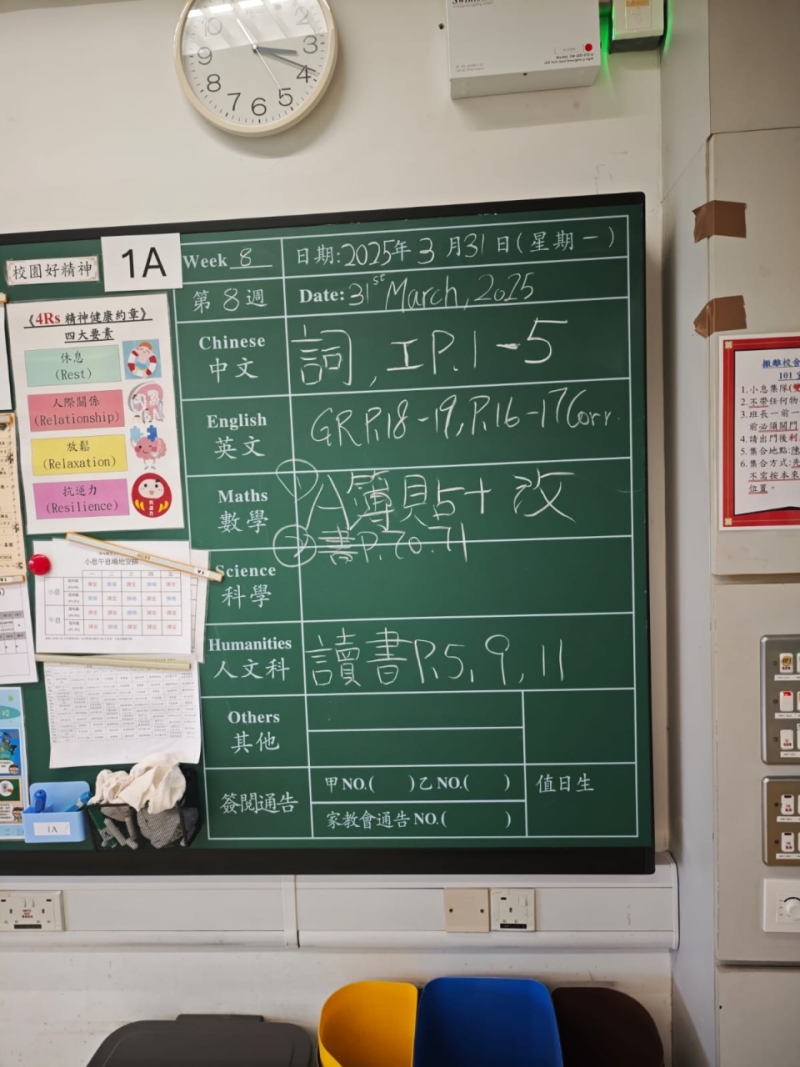 10
9
8
7
6
5
4
3
2
校園好精神
1A
《4Rs 精神健康約章》
四大要素
休息
(Rest)
人際關係
(Relationship)
放鬆
(Relaxation)
抗逆力
(Resilience)
小息午息場地安排
小息
午息
1A
Week 8
日期:2025年3月31日(星期一)
第8週
Date: 31st March, 2025
Chinese
中文
詞, 工P.1-5
English
英文
GR P.18-19, P.16-17 Corr.
Maths
數學
① A簿頁5+改
② 書P.70.71
Science
科學
Humanities
人文科
讀書P.5, 9, 11
Others
其他
簽閱通告
甲NO.( )乙NO.( )
家教會通告NO.( )
值日生
101
1.小息集隊
2.不帶任何物
3.班長一前一
前必須關門
4.請出門後利
5.集合地點:陳
6.集合方式:先
不需按本來
位置。